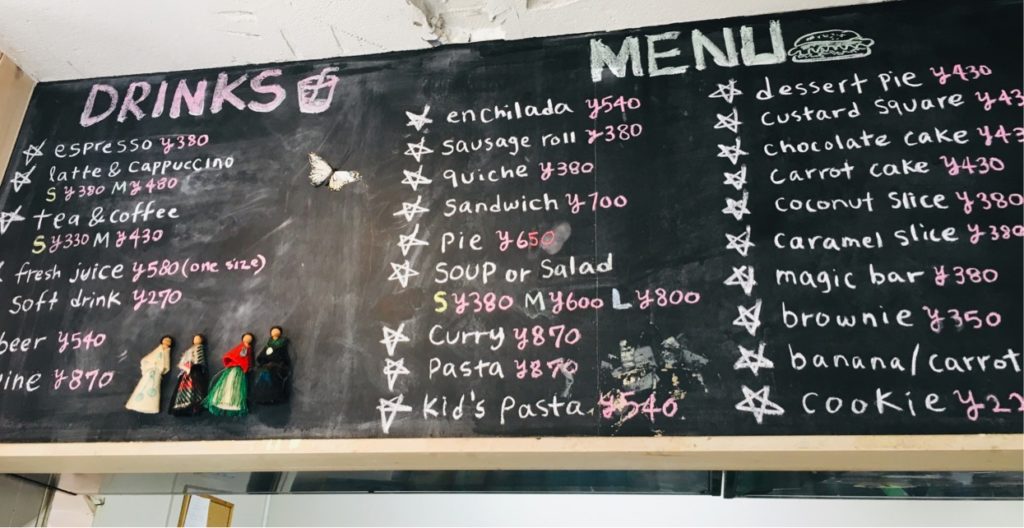 DRINKS
espresso ¥380
latte & cappuccino
S ¥380 M ¥480
tea & coffee
S ¥330 M ¥430
fresh juice ¥580 (one size)
soft drink ¥270
beer ¥540
¥870
MENU
enchilada ¥540
sausage roll ¥380
quiche ¥380
sandwich ¥700
pie ¥650
soup or salad
S ¥380 M ¥600 L ¥800
curry ¥870
pasta ¥870
kid's pasta ¥540
dessert pie ¥430
custard square
chocolate cake
carrot cake ¥430
coconut slice ¥380
caramel slice ¥380
magic bar ¥380
brownie ¥350
banana/carrot
cookie